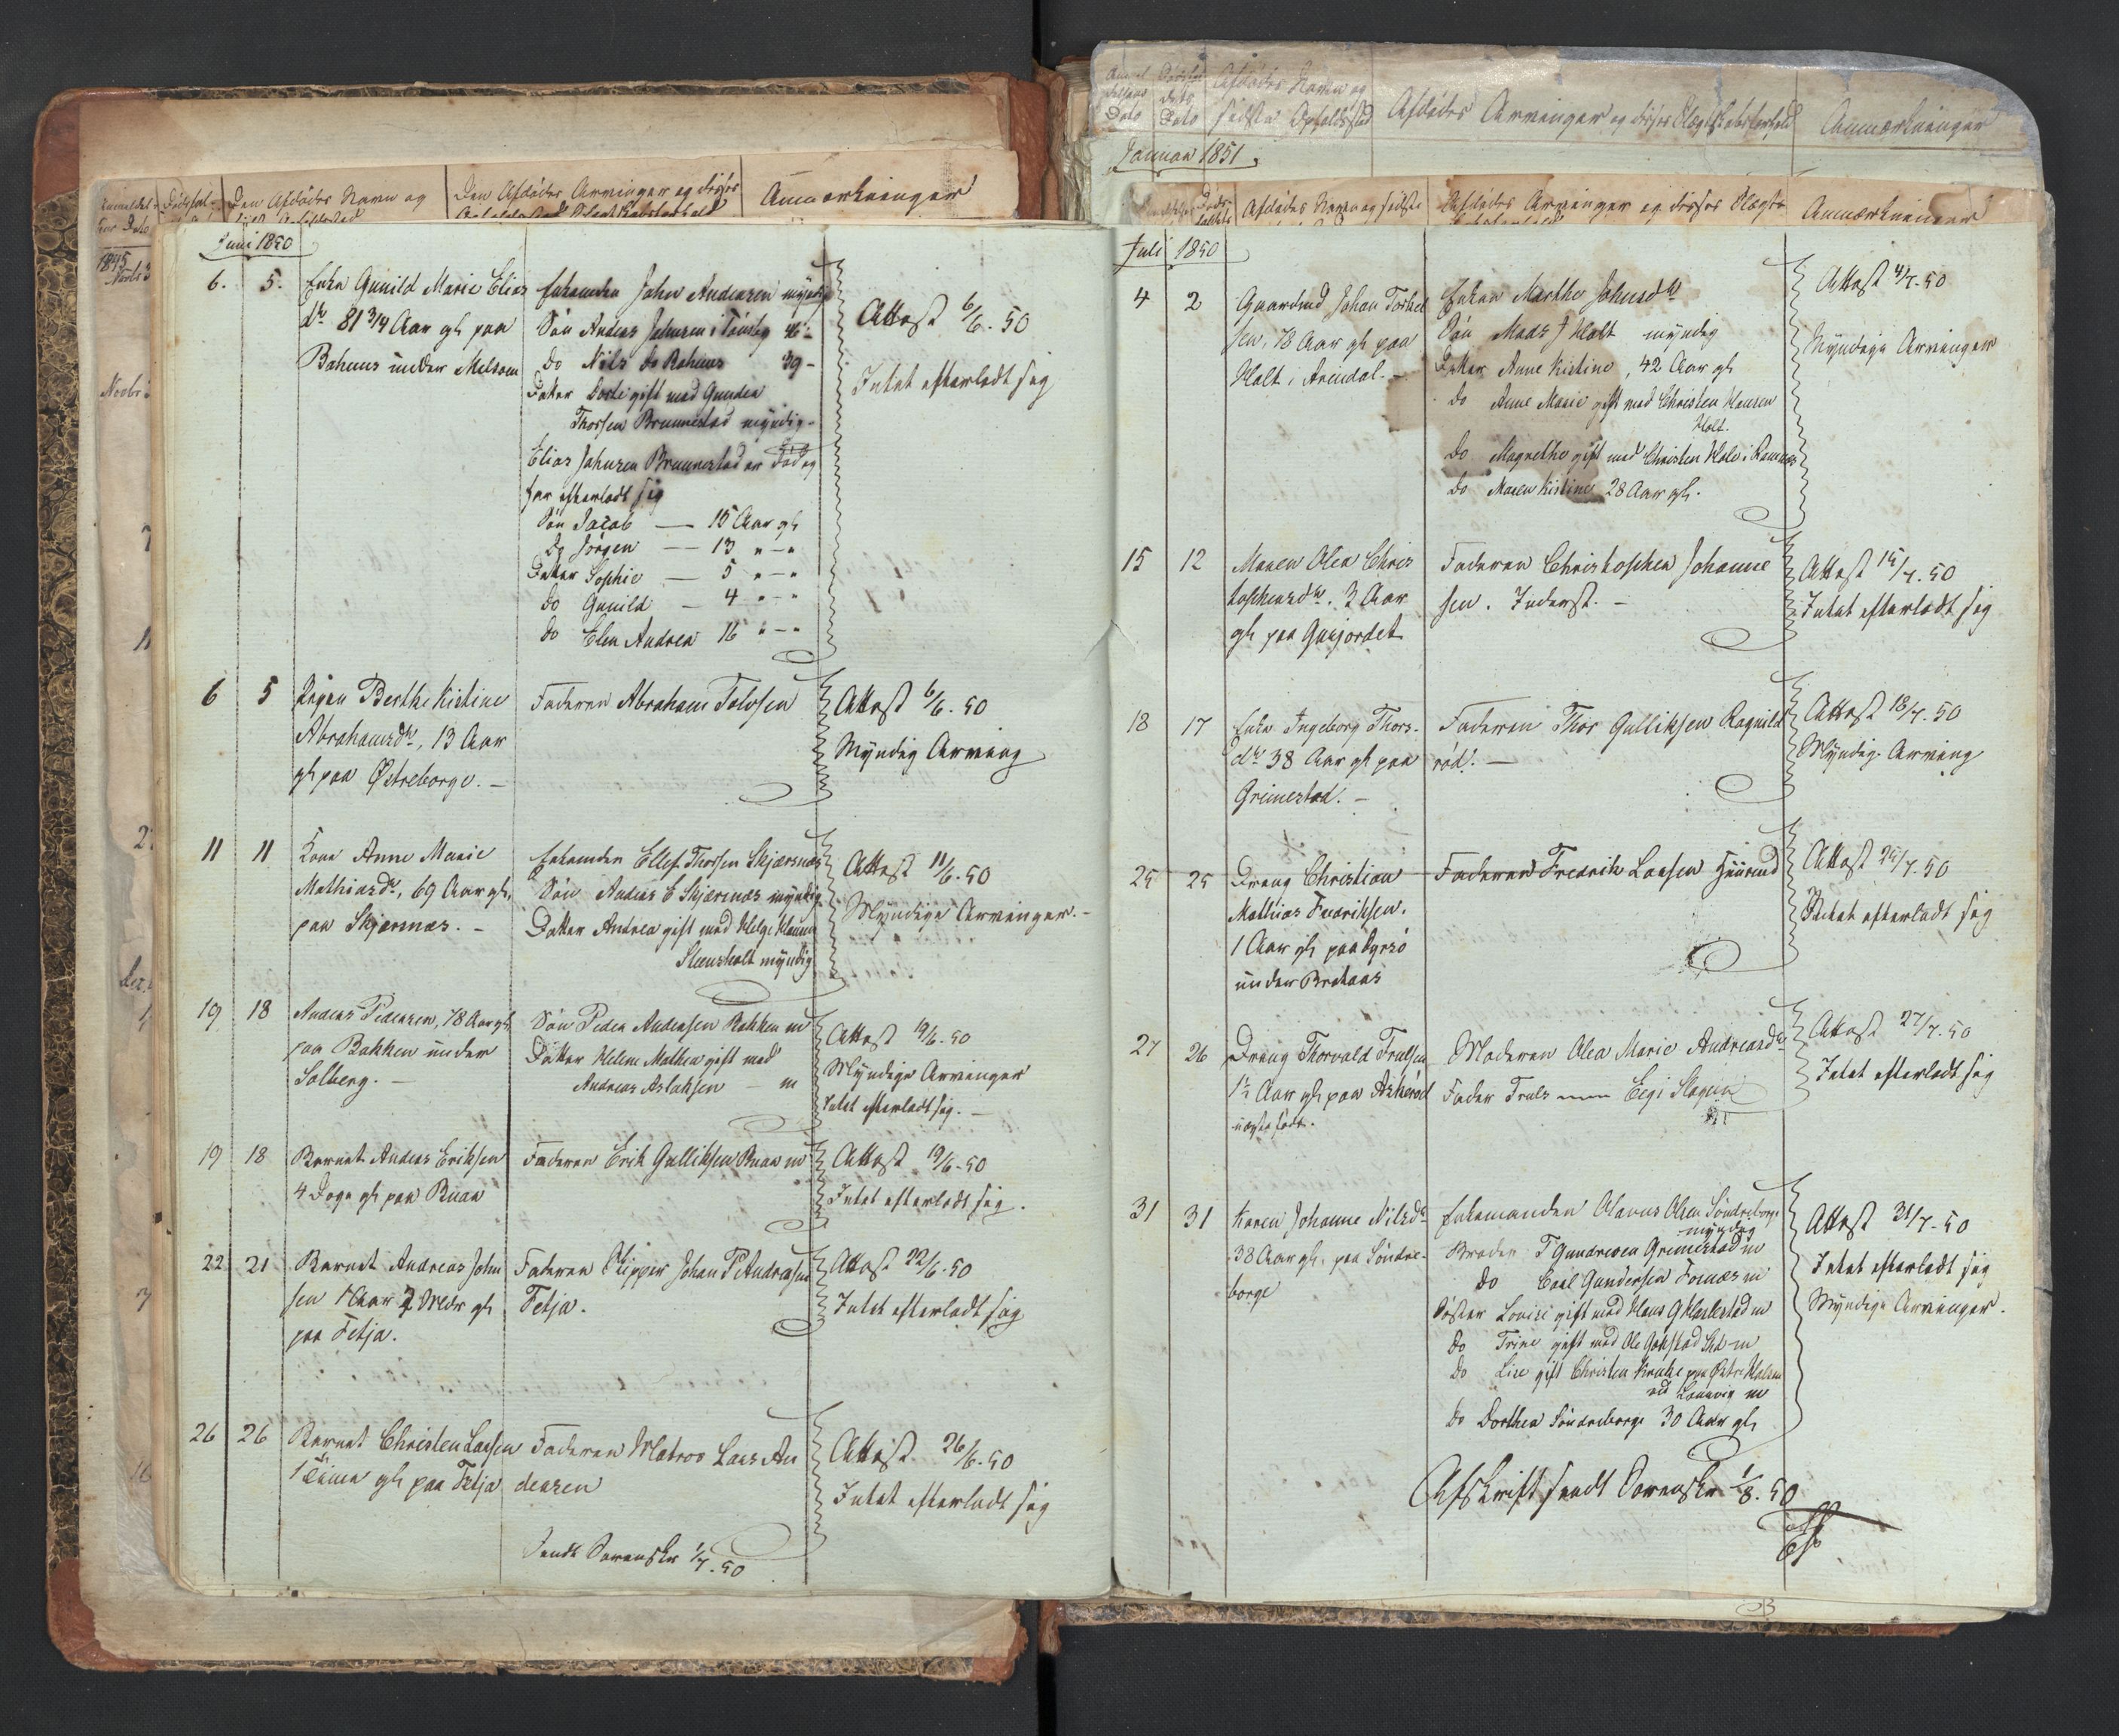 Anmærkninger
Den Afdødes Navn og
Den Afdødes Arvinger og disses
1845
Juni 1850
6. 5. Enke Gunild Marie Elias
dtr 81 3/4 Aar gl paa
Bahuus under Melsom
Enkemanden John Andersen myndig
Søn Anders Johnsen i Tønsbg 46 -
Do Nils do Bahuus 39 -
Datter Dorte gift med Gunder
Thorsen Brunnestad myndig -
Elias Johnsen Brunnestad er død og
har efterladt sig
Søn Jacob — 15 Aar gl
Do Jörgen — 13 " — "
Datter Sophie — 5 " — "
Do Gunild — 4 " — "
Do Elen Andrea 16 " — "
Attest 6/6. 50
Intet efterladt sig
6 5 Pigen Berthe Kistine
Abrahamsdtr, 13 Aar
gl paa Østreborge. —
Faderen Abraham Tolvsen
Attest 6/6. 50
Myndig Arving
11 11 Kone Anne Marie
Mathiasdtr, 69 Aar gl,
paa Skjærsnæs. —
Enkemanden Ellef Thorsen Skjærsnæs
Søn Anders E Skjærsnæs myndig
Datter Andrea gift med Helge Hansen
Steensholt myndig
Attest 11/6. 50
Myndige Arvinger. —
19 18 Anders Pedersen, 78 Aar gl
paa Bakken under
Solberg. —
Søn Peder Andersen Bakken m
Datter Helene Mathea gift med
Andreas Aslaksen — m
Attest 19/6. 50
Myndige Arvinger
Intet efterladt sig. —
19 18 Barnet Anders Eriksen
4 Dage gl paa Ruaa
Faderen Erik Gulliksen Ruaa m
Attest 19/6. 50
Intet efterladt sig.
22 21 Barnet Andreas John
sen 1 Aar 7 Mdr gl
paa Fetja.
Faderen Skipper Johan P Andreasen
Fetja.
Attest 22/6. 50
Intet efterladt sig
26 26 Barnet Christen Larsen
1 Time gl paa Fetja
Faderen Matros Lars An
dersen
Attest. 26/6. 50
Intet efterladt sig
Sendt Sorenskr 1/7. 50
Afdødes Navn og
sidste Opholdssted
Afdødes Arvinger og disses Slægtskabsforhold
Anmærkninger
Januar 1851
Afdødes Navn og sidste
Afdødes Arvinger og disses Slægts
Anmærkninger
Juli 1850
4 2 Gaardmd Johan Torkel
sen, 78 Aar gl paa
Holt i Arendal. —
Enken Marthe Johnsdtr
Søn Mads J Holt myndig
Datter Anne Kistine, 42 Aar gl
Do Anne Marie gift med Christen Hansen
Holt.
Do Magrethe gift med Christen Hole i Ramnes
Do Maren Kistine 28 Aar gl.
Attest 4/7. 50
Myndige Arvinger
15 12 Maren Olea Chris
tophersdtr. 3 Aar
gl paa Gaasjordet
Faderen Christopher Johanne
sen. Inderst. —
Attest 15/7. 50
Intet efterladt sig
18 17 Enke Ingeborg Thors-
dtr 38 Aar gl paa
Grimestad. —
Faderen Thor Gulliksen Ragnild
rød. —
Attest 18/7. 50
Myndig Arving
25 25 Dreng Christian
Mathias Fredriksen.
1 Aar gl paa Dyrsø
under Brekaas
Faderen Fredrik Larsen Huusmd
Attest 25/7. 50
Intet efterladt sig
27 26 Dreng Thorvald Trulsen
1½ Aar gl paa Askerød
uægte født.
Moderen Olea Marie Andreasdtr
Fader Truls
Attest 27/7. 50
Intet efterladt sig
31 31 Karen Johanne Nilsdtr
38 Aar gl, paa Søndre-
borge
Enkemanden Olavus Olsen Søndreborge
myndig
Broder T Gundersen Grimestad m
Do Carl Gundersen Fornæs m
Søster Lovise gift med Hans G Harlestad m
Do Trine gift med Ole Gokstad m
Do Lise gift Christen Krukke paa Østre Halsen
ved Laurvig m
Do Dorthea Søndreborge 30 Aar gl
Attest 31/7. 50
Intet efterladt sig
Myndige Arvinger.
Afskrift sendt Sorenskr 1/8. 50